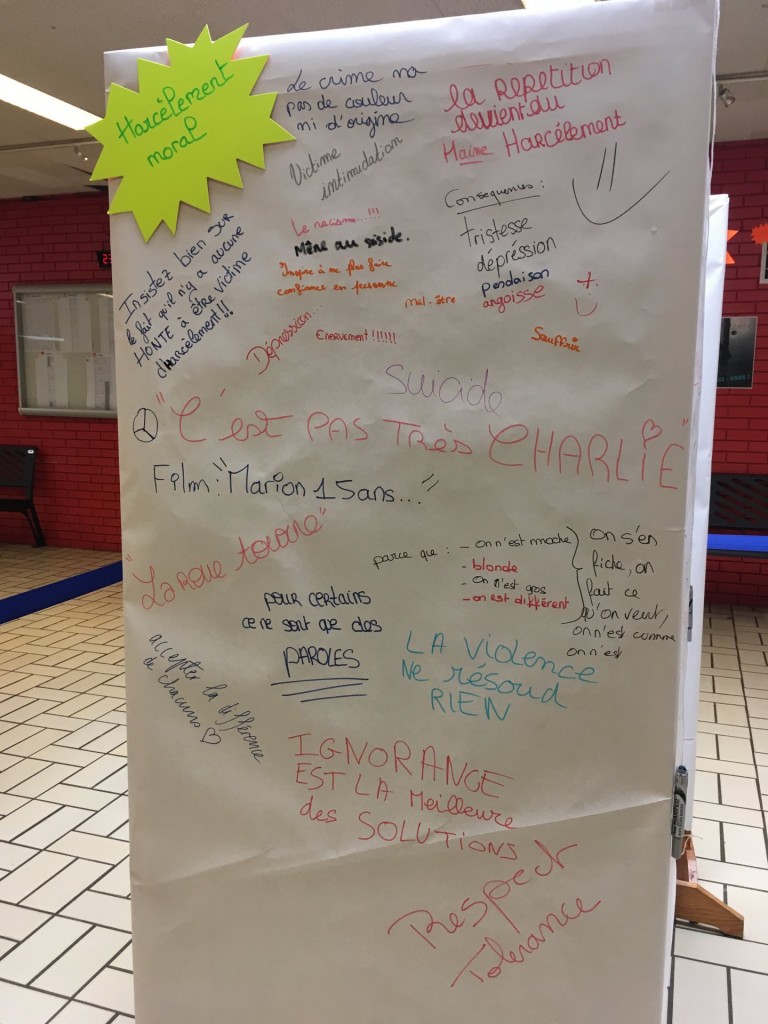 Harcèlement
moral
Le crime na
pas de couleur
ni d'origine
Victime
intimidation
la REPETITION
devient du
Maine Harcélement
Insistez bien SUR
le fait qu'il n'y a aucune
HONTE à être victime
d'harcèlement!!
Le racisme...!!!
Mène au siside.
Inspire à ne plus faire
confiance en personne
Mal-être
Consequences :
tristesse
dépréssion
pendaison
angoisse
Souffrir
Dépression...
Enervement!!!!!!
Suicide
"C'est PAS TRès CHARLIE"
Film: "Marion 15ans..."
"La roue tourne"
parce que : - on n'est moche
- blonde
- on n'est gros
- on est différent
on s'en
fiche, on
fait ce
qu'on veut,
on n'est comme
on n'est
pour certains
ce ne sont que des
PAROLES
accepter la différence
de chacuns
LA violence
Ne résoud
RIEN
IGNORANCE
EST LA Meilleure
des SOLUTIONS
Respect
Tolerance